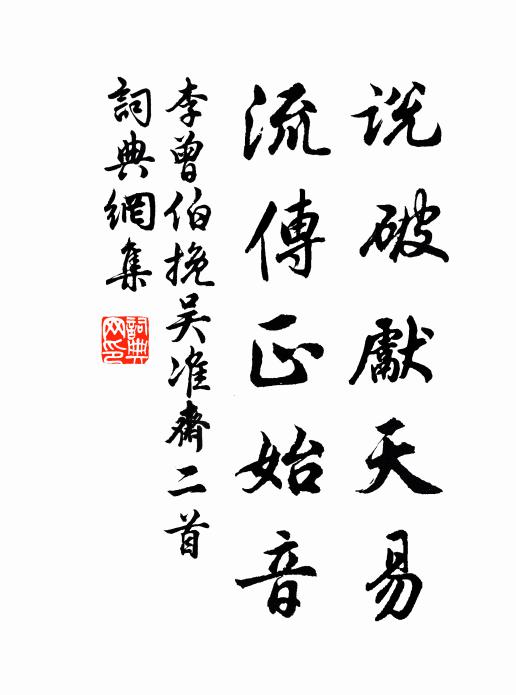 说破獻天易
流傳正始音
李曾伯挽吴准齋二首
詞典網集
詞典网印